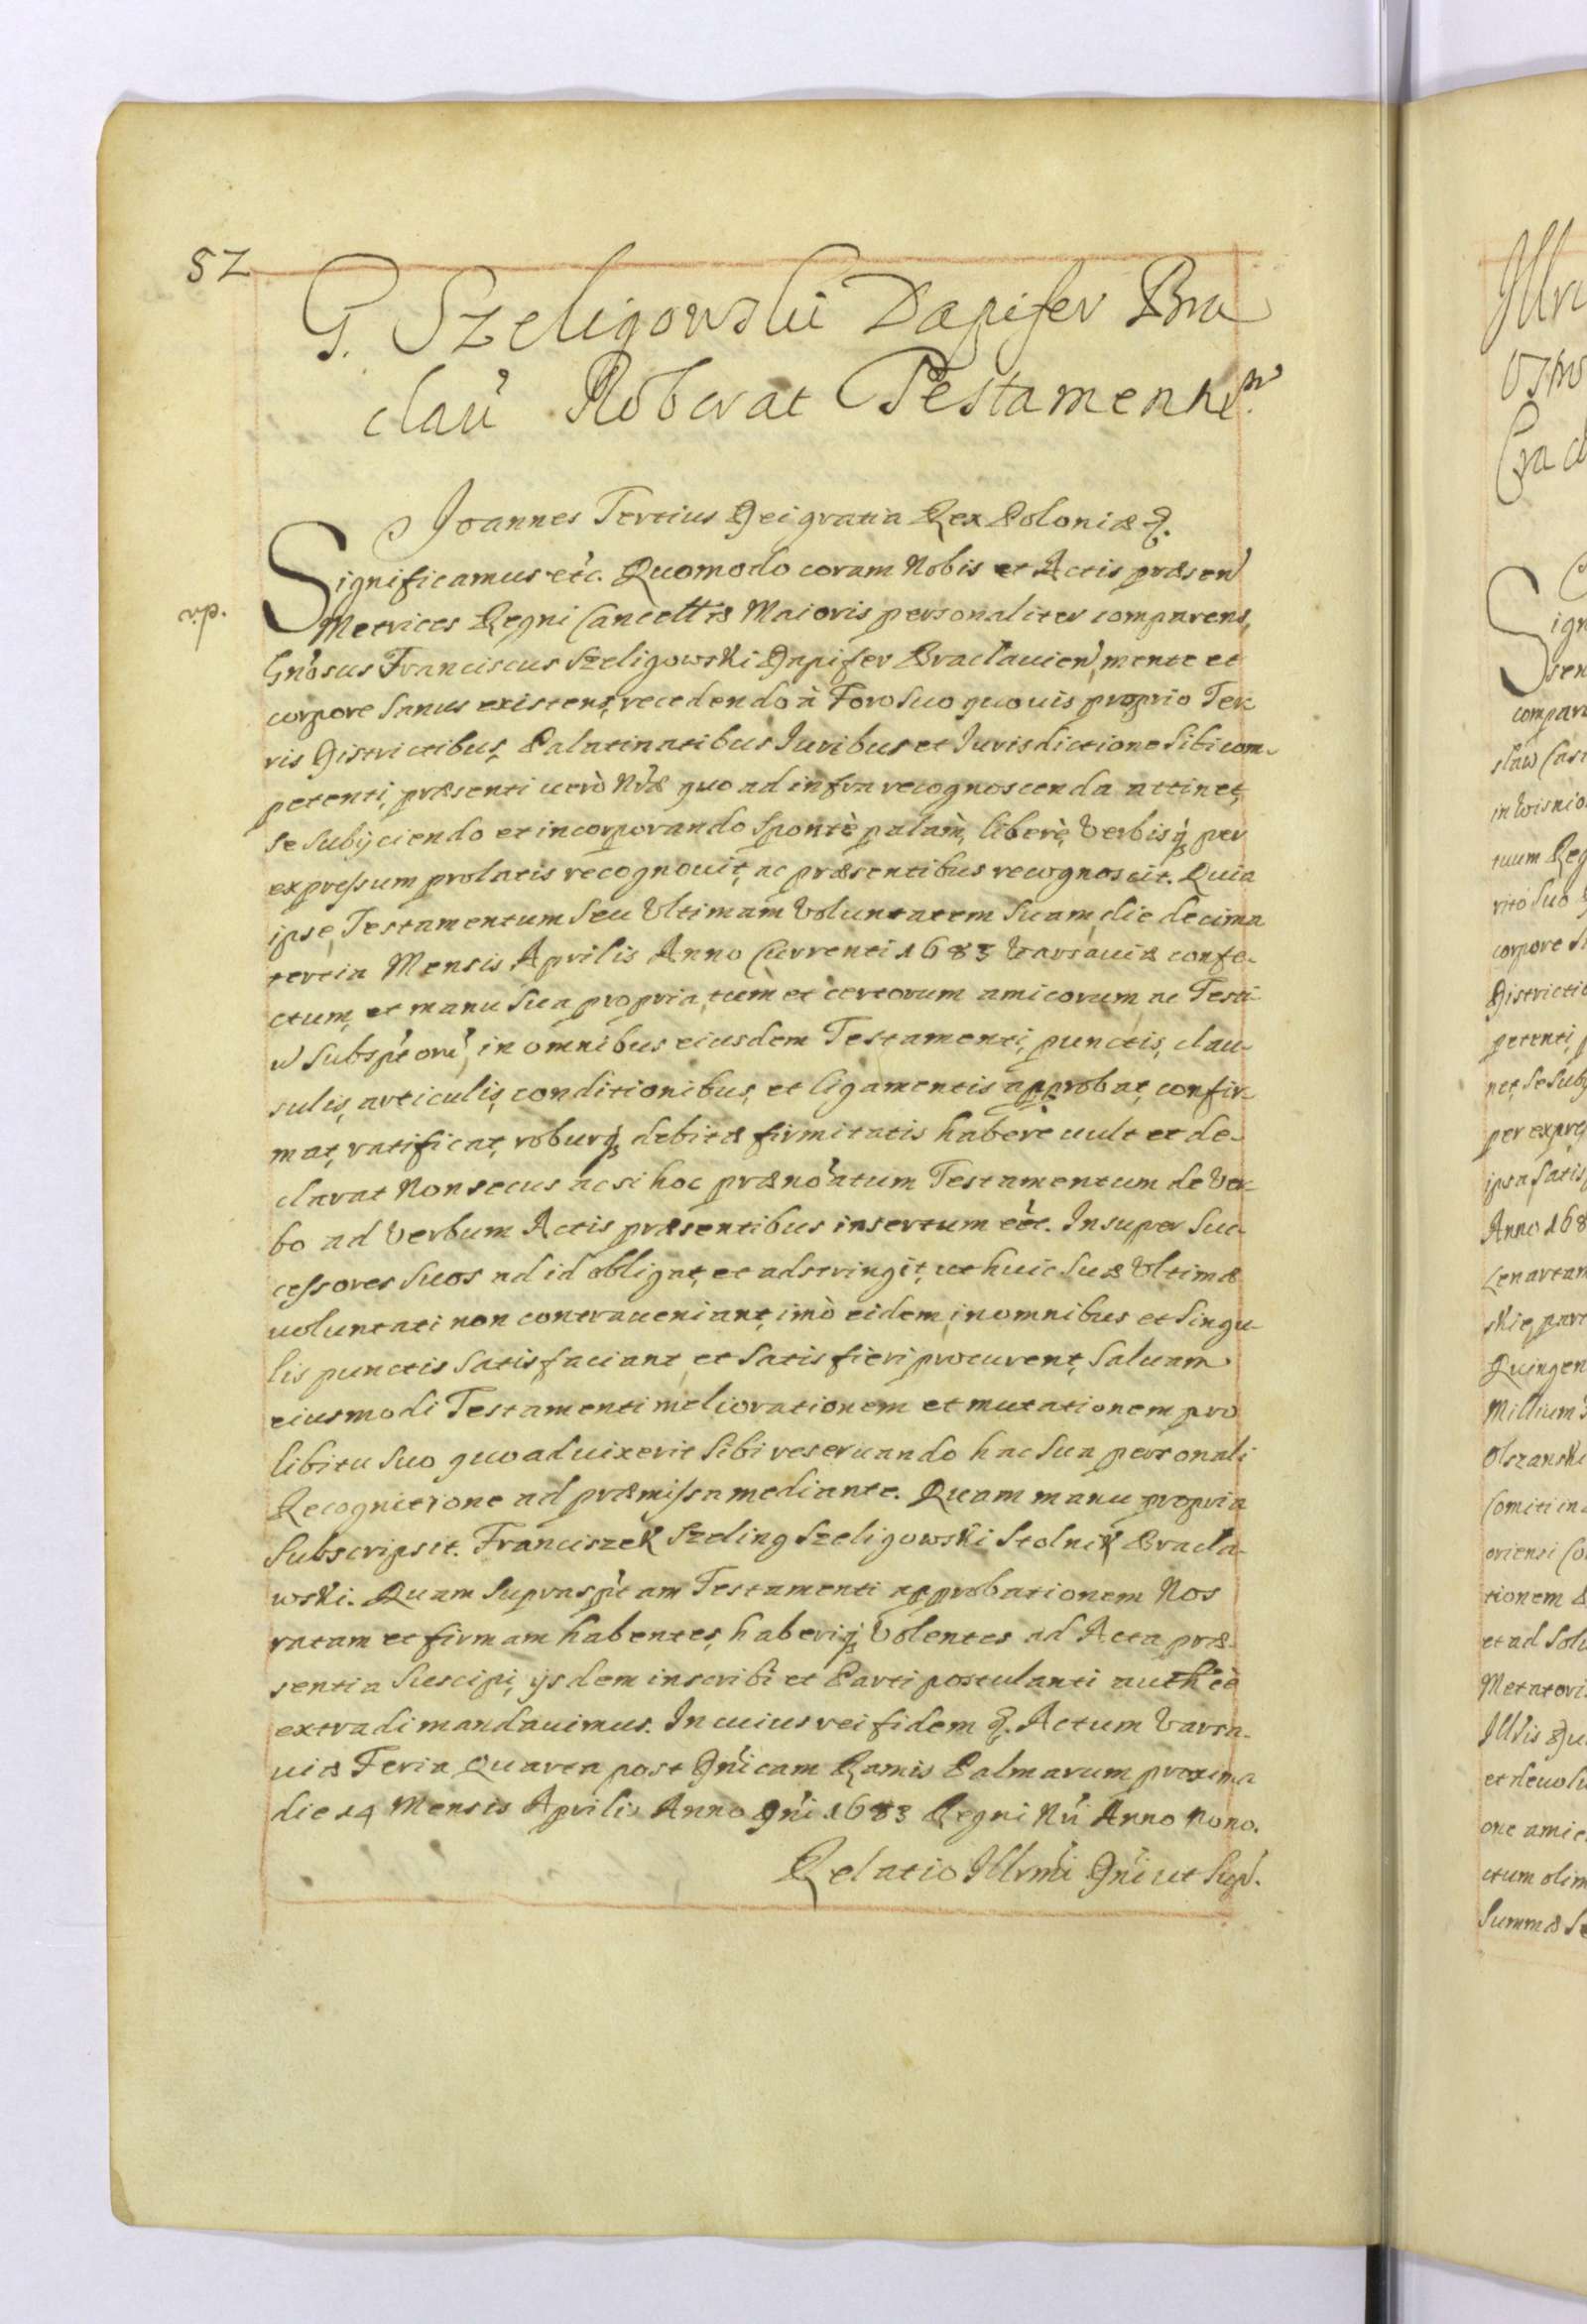 52
G. Szeligowski Dapifer Bra
clau̓ Roborat Testamentu̓m.
Joannes Tertius Dei gratia Rex Poloniæ &.
Significamus etc. Quomodo coram Nobis et Actis præsen̓
Metrices Regni Cancellr̓æ Maioris personaliter comparens,
Gn̓osus Franciscus Szeligowski Dapifer Braclauien̓, mente et
corpore sanus existens, recedendo à Foro suo quouis proprio Ter-
ris Districtibus, Palatinatibus Iuribus et Iurisdictione sibi com-
petenti, præsenti uerò Nr̓æ quo ad infra recognoscenda attinet,
se subijciendo et incorporando sponte palàm, liberè, Verbisq́ per
expressum prolatis recognouit, ac præsentibus recognoscit. Quia
ipse, Testamentum seu Vltimam Voluntatem suam, die decima
tertia Mensis Aprilis Anno Currenti 1683 Varsauiæ confe-
ctum, et manu sua propria, tùm et certorum amicorum ac Testi-
u̓ subsp̓t oru̓, in omnibus eiusdem Testamenti, punctis, clau-
sulis, articulis, conditionibus, et ligamentis approbat, confir-
mat, ratificat, roburq́ debitæ firmitatis habere uult et de-
clarat Non secus ac si hoc præno̓atum Testamentum de Ver-
bo ad Verbum Actis præsentibus insertum eet̓. Insuper Suc-
cessores Suos ad id obligat, et adstringit, ut huic Suæ Vltimæ
uoluntati non contraueniant, imò eidem, in omnibus et singu-
lis punctis satisfaciant et satisfieri procurent, Saluam
eiusmodi Testamenti meliorationem et mutationem pro
libitu suo quoad uixerit sibi reseruando hac sua personali
Recognitione ad præmissa mediante. Quam manu propria
subscripsit. Franciszek Szeling Szeligowski Stolnik Bracla-
wski. Quam suprasp̓tam Testamenti approbationem Nos
ratam et firmam habentes, haberiq́ Volentes ad Acta præ-
sentia suscipi, ijsdem inscribi et Parti postulanti auth̓ee
extradi mandauimus. In cuius rei fidem &. Actum Varsa-
uiæ Feria Quarta post Dn̓icam Ramis Palmarum proxima
die 14 Mensis Aprilis Anno Dn̓i 1683 Regni Nr̓i Anno Nono.
Relatio Illrmi̓ Dn̓i ut sup̓.